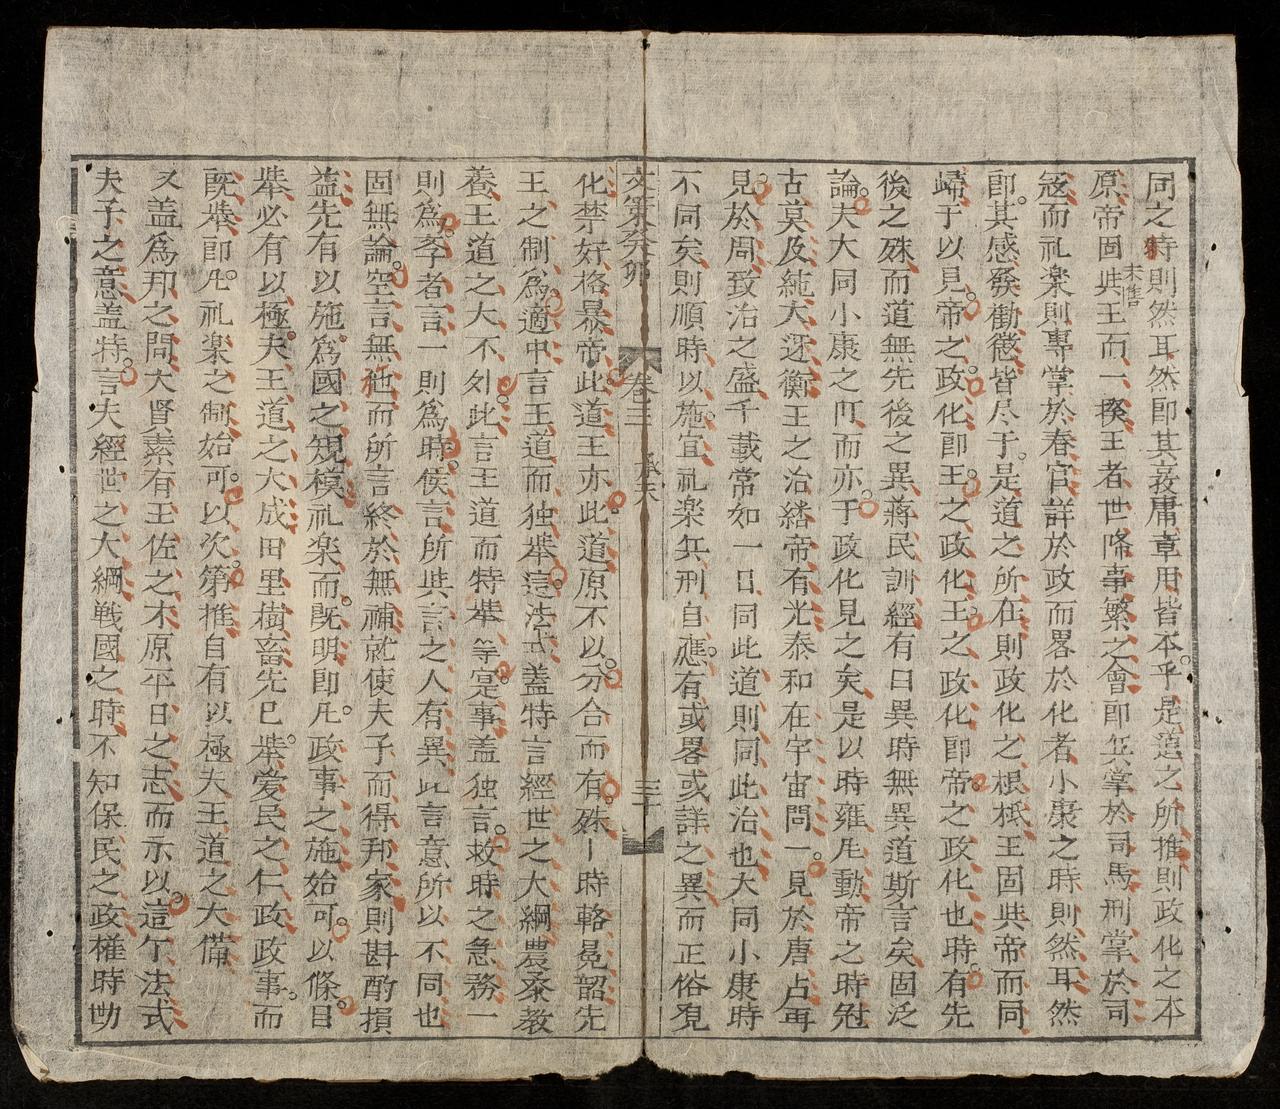 同之時則然耳然即其敦庸章用皆本乎是道之所推則政化之本
原帝固與王而一揆王者世降事繁之會即兵掌於司馬刑掌於司
寇而礼楽則專掌於春官詳於政而畧於化者小康之時則然耳然
即其感發勸懲皆尽于是道之所在則政化之根柢王固與帝而同
歸于以見帝之政化即王之政化王之政化即帝之政化也時有先
後之殊而道無先後之異蒋民訓經有曰異時無異道斯言矣固泛
論夫大同小康之而亦于政化見之矣是以時雍動帝之時
古莫及純大迓衡王之治紹帝有光泰和在宇宙問一見於唐占再
見於周致治之盛千載常如一日同此道則同此治也大同小康時
不同矣則順時以施宜礼楽兵刑自應有或畧或詳之異而正俗
文策癸卯
卷三
三十
化禁奸格暴帝此道王亦此道原不以分合而有殊時輅冕韶先
王之制為適中言王道而独举這法式盖特言經世之大綱農桑教
養王道之大不外此言王道而特举等寔事盖独言救時之急務一
則為孝者言一則為時侯言所與言之人有異此言意所以不同也
固無論空言無他而所言終於無補就使夫子而得邦家則斟酌損
益先有以施為國之規模礼楽而既明即凡政事之施始可以條目
举必有以極夫王道之大成田里樹畜先已举爱民之仁政政事而
既举即凡礼楽之制始可以次第推自有以極夫王道之大備
又盖為邦之問大賢素有王佐之才原平日之志而示以這乍法式
夫子之意盖特言夫經世之大綱戦國之時不知保民之政權時